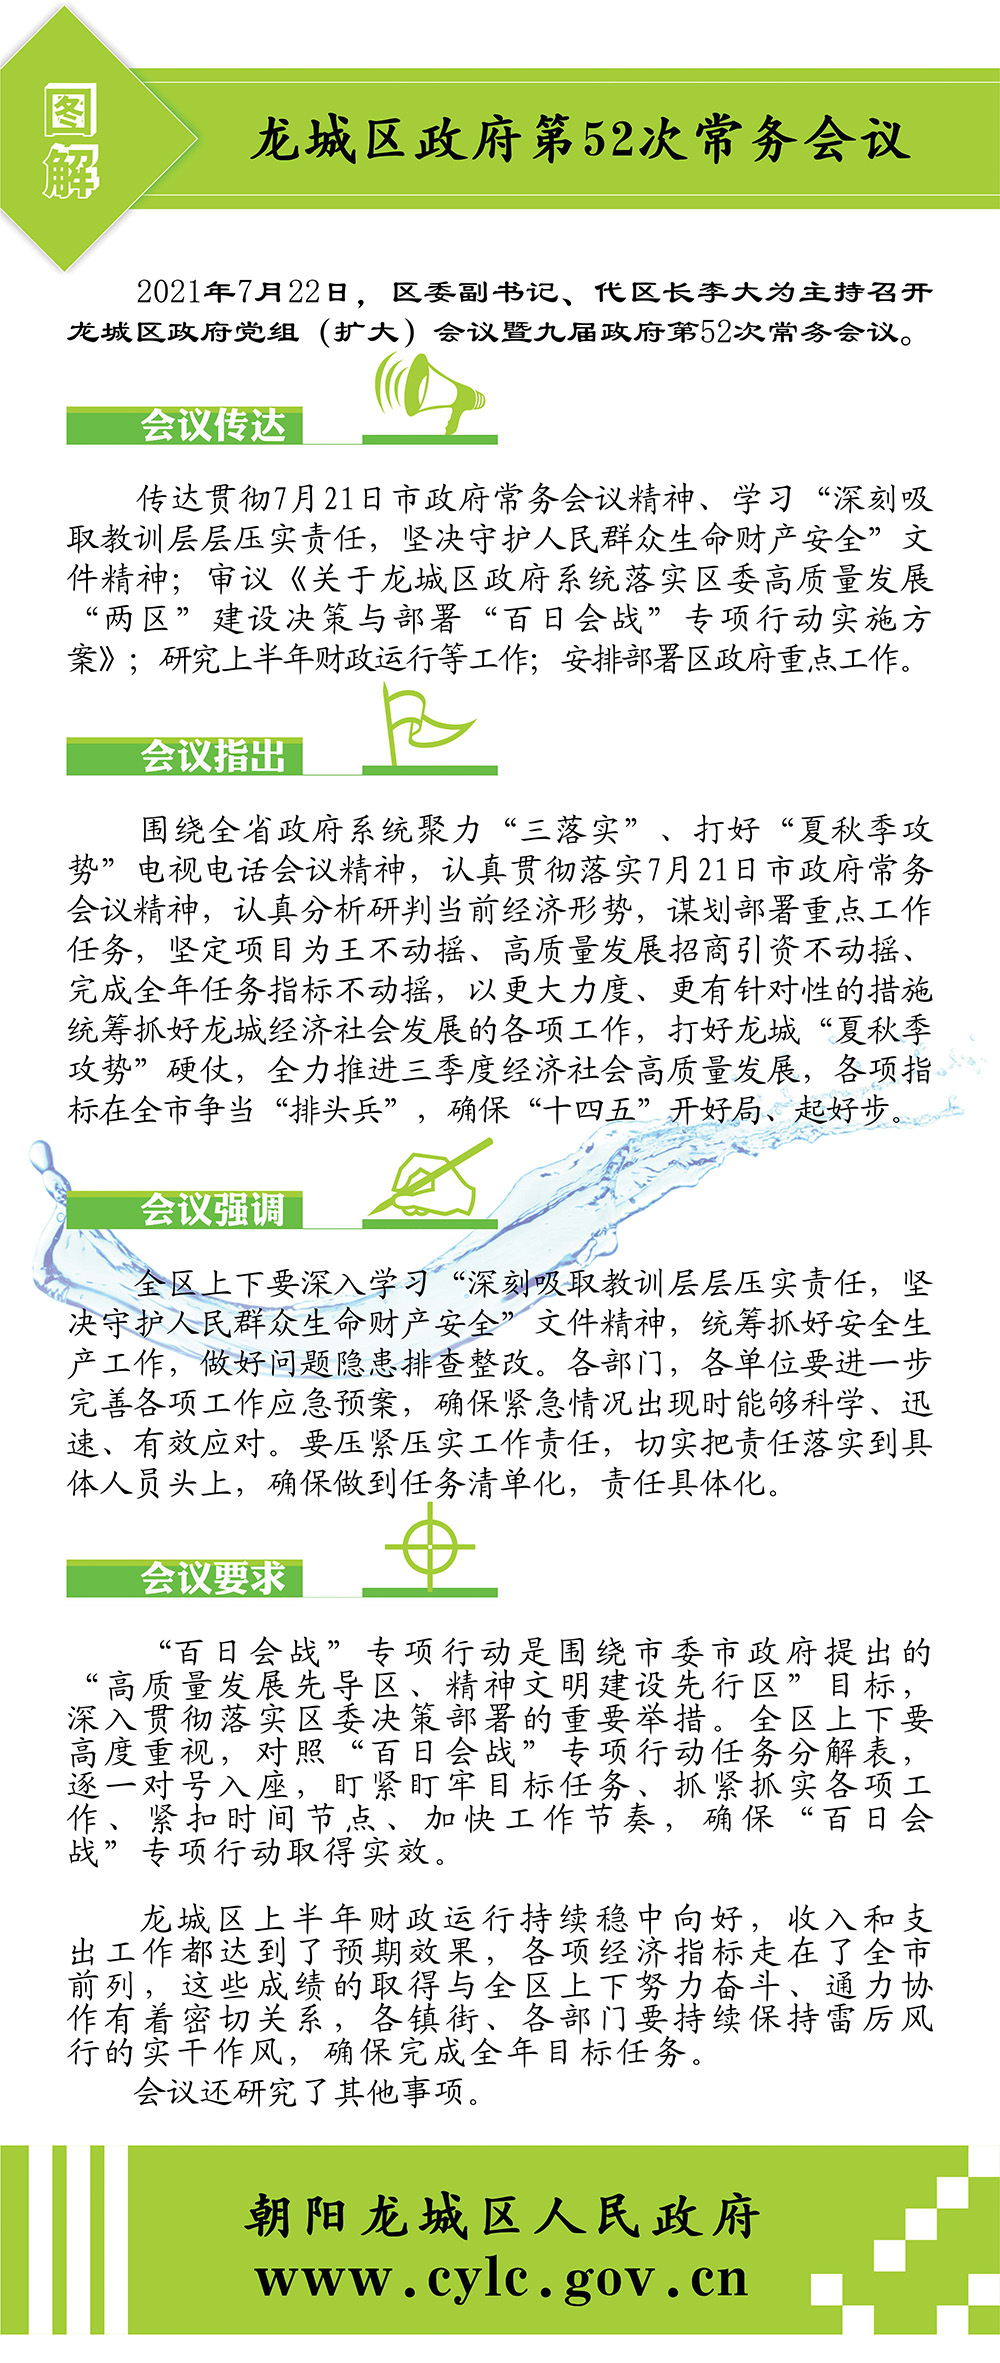 图解
龙城区政府第52次常务会议
2021年7月22日，区委副书记、代区长李大为主持召开
龙城区政府党组（扩大）会议暨九届政府第52次常务会议。
会议传达
传达贯彻7月21日市政府常务会议精神、学习“深刻吸
取教训层层压实责任，坚决守护人民群众生命财产安全”文
件精神；审议《关于龙城区政府系统落实区委高质量发展
“两区”建设决策与部署“百日会战”专项行动实施方
案》；研究上半年财政运行等工作；安排部署区政府重点工作。
会议指出
围绕全省政府系统聚力“三落实”、打好“夏秋季攻
势”电视电话会议精神，认真贯彻落实7月21日市政府常务
会议精神，认真分析研判当前经济形势，谋划部署重点工作
任务，坚定项目为王不动摇、高质量发展招商引资不动摇、
完成全年任务指标不动摇，以更大力度、更有针对性的措施
统筹抓好龙城经济社会发展的各项工作，打好龙城“夏秋季
攻势”硬仗，全力推进三季度经济社会高质量发展，各项指
标在全市争当“排头兵”，确保“十四五”开好局、起好步。
会议强调
全区上下要深入学习“深刻吸取教训层层压实责任，坚
决守护人民群众生命财产安全”文件精神，统筹抓好安全生
产工作，做好问题隐患排查整改。各部门，各单位要进一步
完善各项工作应急预案，确保紧急情况出现时能够科学、迅
速、有效应对。要压紧压实工作责任，切实把责任落实到具
体人员头上，确保做到任务清单化，责任具体化。
会议要求
“百日会战”专项行动是围绕市委市政府提出的
“高质量发展先导区、精神文明建设先行区”目标，
深入贯彻落实区委决策部署的重要举措。全区上下要
高度重视，对照“百日会战”专项行动任务分解表，
逐一对号入座，盯紧盯牢目标任务、抓紧抓实各项工
作、紧扣时间节点、加快工作节奏，确保“百日会
战”专项行动取得实效。
龙城区上半年财政运行持续稳中向好，收入和支
出工作都达到了预期效果，各项经济指标走在了全市
前列，这些成绩的取得与全区上下努力奋斗、通力协
作有着密切关系，各镇街、各部门要持续保持雷厉风
行的实干作风，确保完成全年目标任务。
会议还研究了其他事项。
朝阳龙城区人民政府
www.cylc.gov.cn